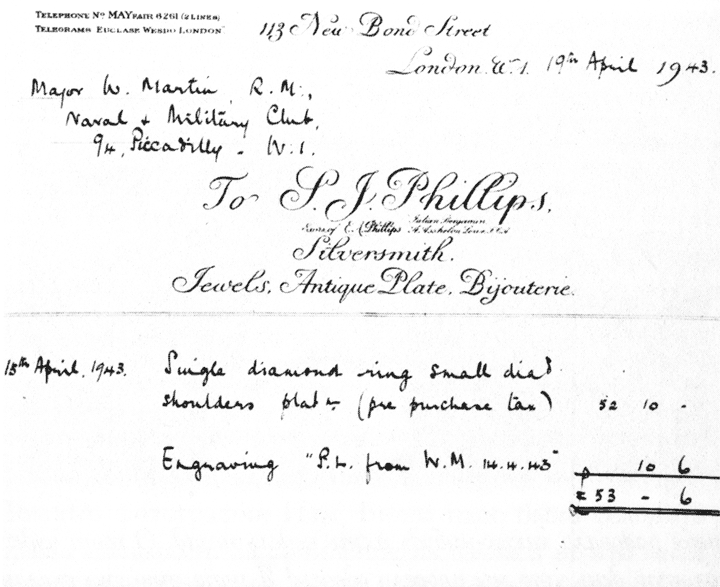 TELEPHONE Nº MAYFAIR 6261 (2 LINES)
TELEGRAMS EUCLASE WESDO LONDON
113 New Bond Street
London. W.1. 19th April 1943.
Major W. Martin, R.M.,
Naval & Military Club,
94, Piccadilly - W.1.
To S. J. Phillips,
Exors of E. A. Phillips
Silversmith.
Jewels, Antique Plate, Bijouterie.
15th April, 1943. Single diamond ring small diad
shoulders platm (pre purchase tax) 52 10 -
Engraving "P.L. from W.M. 14.4.43" 10 6
£ 53 - 6